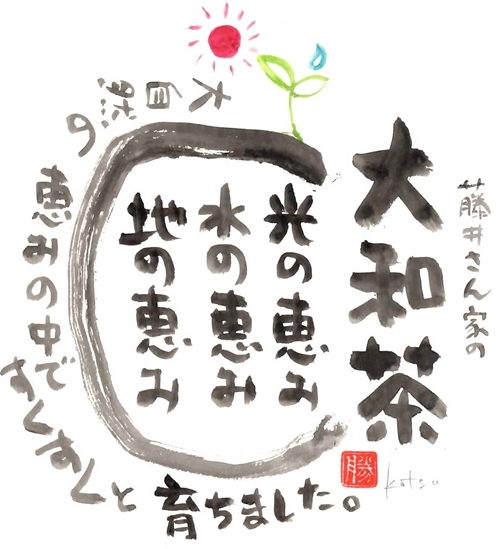 藤井さん家の
大和茶
光の恵み
水の恵み
地の恵み
大自然の恵みの中ですくすくと育ちました。
勝
Katsu